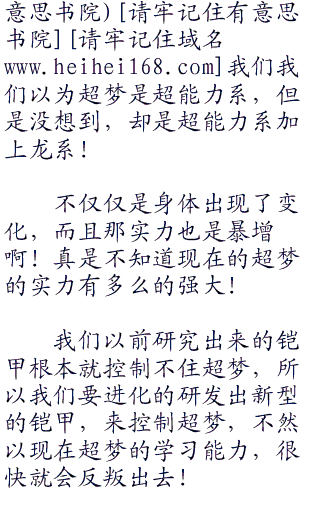 意思书院)[请牢记住有意思
书院][请牢记住域名
www.heihei168.com]我们我
们以为超梦是超能力系，但
是没想到，却是超能力系加
上龙系！
不仅仅是身体出现了变
化，而且那实力也是暴增
啊！真是不知道现在的超梦
的实力有多么的强大！
我们以前研究出来的铠
甲根本就控制不住超梦，所
以我们要进化的研发出新型
的铠甲，来控制超梦，不然
以现在超梦的学习能力，很
快就会反叛出去！